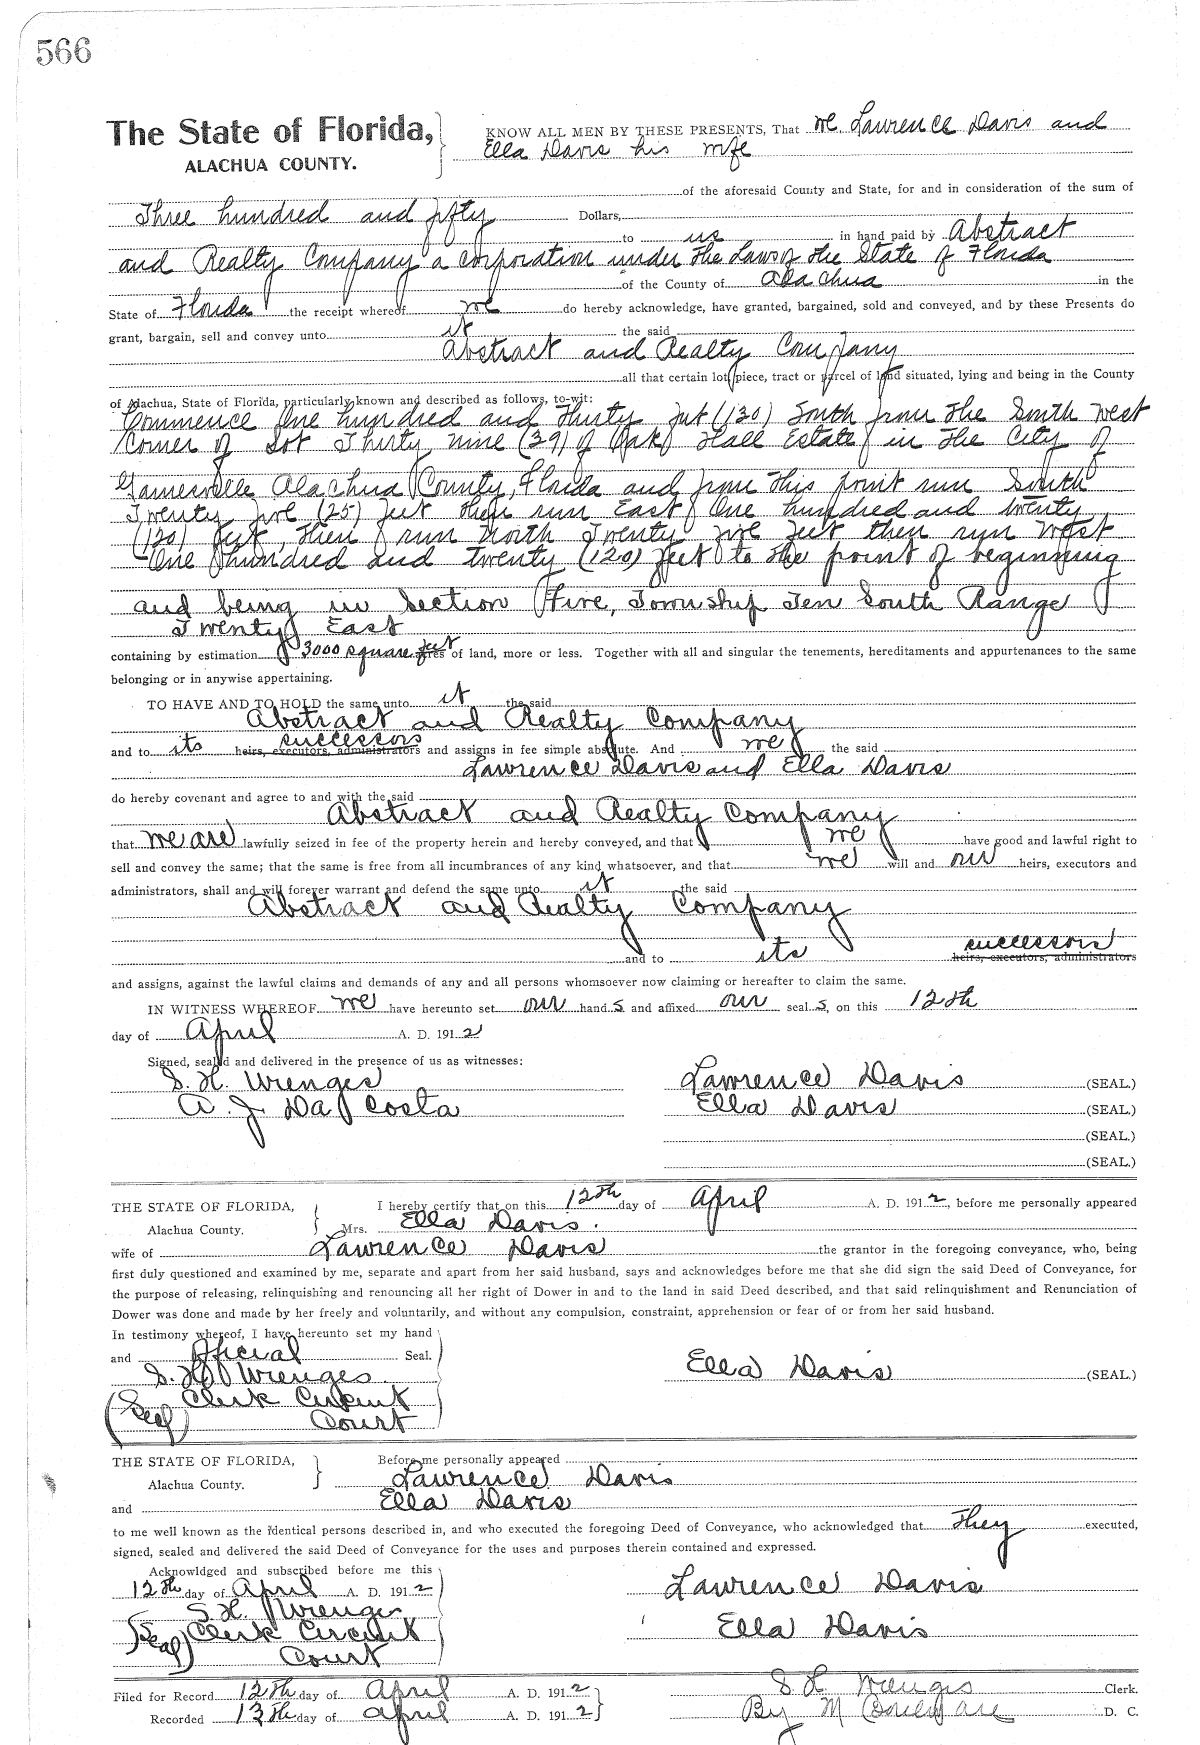 566
The State of Florida,
ALACHUA COUNTY.
KNOW ALL MEN BY THESE PRESENTS, That we Lawrence Davis and
Ella Davis his wife
of the aforesaid County and State, for and in consideration of the sum of
Three hundred and fifty Dollars,
to us in hand paid by Abstract
and Realty Company a corporation under the Laws of the State of Florida
of the County of Alachua in the
State of Florida the receipt whereof we do hereby acknowledge, have granted, bargained, sold and conveyed, and by these Presents do
grant, bargain, sell and convey unto it the said
Abstract and Realty Company
all that certain lot, piece, tract or parcel of land situated, lying and being in the County
of Alachua, State of Florida, particularly known and described as follows, to-wit:
Commence One hundred and Thirty feet (130) South from the South West
Corner of Lot Thirty nine (39) of Oak Hall Estate in the City of
Gainesville Alachua County, Florida and from this point run South
Twenty five (25) feet then run East One hundred and twenty
(120) feet, then run North Twenty five feet then run West
One hundred and twenty (120) feet to the point of beginning
and being in Section Five, Township Ten South Range
Twenty East
containing by estimation 3000 square feet of land, more or less. Together with all and singular the tenements, hereditaments and appurtenances to the same
belonging or in anywise appertaining.
TO HAVE AND TO HOLD the same unto it the said
Abstract and Realty Company
and to its heirs, executors, administrators successors and assigns in fee simple absolute. And we the said
Lawrence Davis and Ella Davis
do hereby covenant and agree to and with the said
Abstract and Realty Company
that we are lawfully seized in fee of the property herein and hereby conveyed, and that we have good and lawful right to
sell and convey the same; that the same is free from all incumbrances of any kind whatsoever, and that we will and our heirs, executors and
administrators, shall and will forever warrant and defend the same unto it the said
Abstract and Realty Company
and to its heirs, executors, administrators successors
and assigns, against the lawful claims and demands of any and all persons whomsoever now claiming or hereafter to claim the same.
IN WITNESS WHEREOF we have hereunto set our hand s and affixed our seal s, on this 12th
day of April A. D. 191 2
Signed, sealed and delivered in the presence of us as witnesses:
S. H. Wienges Lawrence Davis (SEAL.)
A. J. Da Costa Ella Davis (SEAL.)
(SEAL.)
(SEAL.)
THE STATE OF FLORIDA, I hereby certify that on this 12th day of April A. D. 191 2, before me personally appeared
Alachua County. Mrs. Ella Davis.
wife of Lawrence Davis the grantor in the foregoing conveyance, who, being
first duly questioned and examined by me, separate and apart from her said husband, says and acknowledges before me that she did sign the said Deed of Conveyance, for
the purpose of releasing, relinquishing and renouncing all her right of Dower in and to the land in said Deed described, and that said relinquishment and Renunciation of
Dower was done and made by her freely and voluntarily, and without any compulsion, constraint, apprehension or fear of or from her said husband.
In testimony whereof, I have hereunto set my hand
and official Seal.
S. H. Wienges Ella Davis (SEAL.)
(Seal) Clerk Circuit
Court
THE STATE OF FLORIDA, Before me personally appeared
Alachua County. Lawrence Davis
and Ella Davis
to me well known as the identical persons described in, and who executed the foregoing Deed of Conveyance, who acknowledged that they executed,
signed, sealed and delivered the said Deed of Conveyance for the uses and purposes therein contained and expressed.
Acknowldged and subscribed before me this
12th day of April A. D. 191 2 Lawrence Davis
S. H. Wienges
(Seal) Clerk Circuit Ella Davis
Court
Filed for Record 12th day of April A. D. 191 2 S H Wienges Clerk.
Recorded 13th day of April A. D. 191 2 By M D. C.